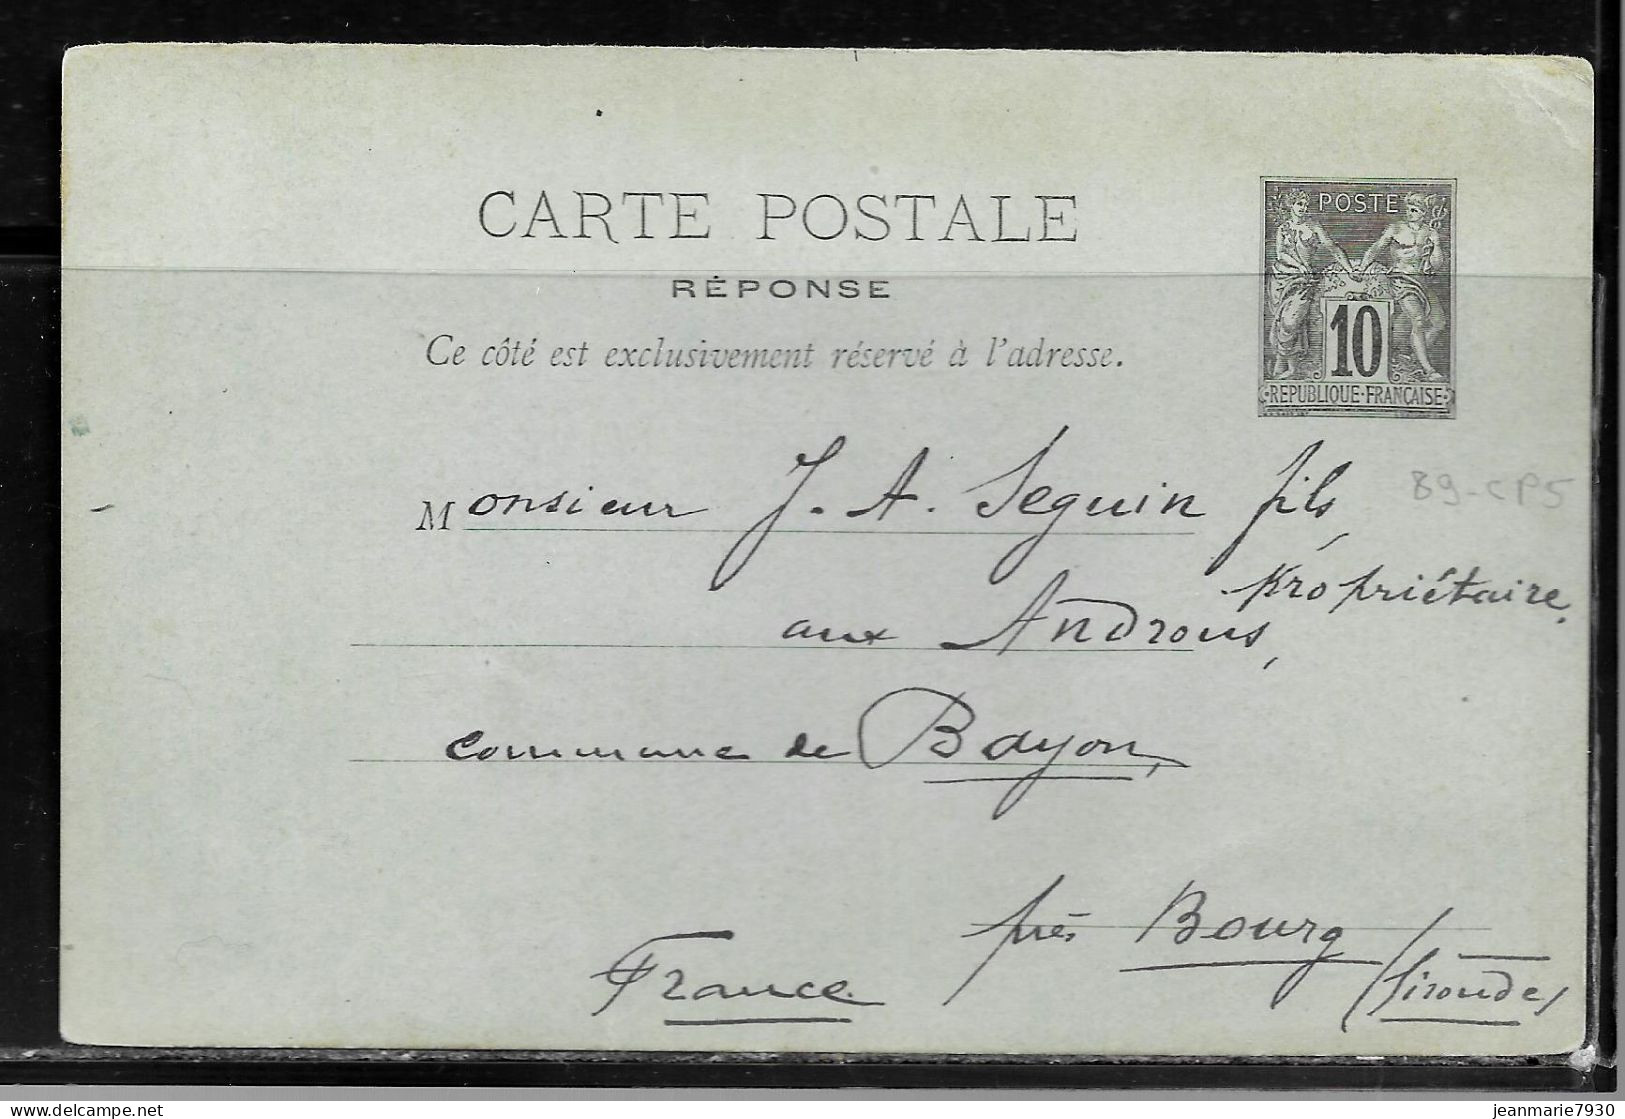 CARTE POSTALE
RÉPONSE
Ce côté est exclusivement réservé à l'adresse.
POSTE
10
REPUBLIQUE·FRANÇAISE
Monsieur J. A. Seguin fils,
propriétaire,
aux Androus,
commune de Bayon,
près Bourg
France (Gironde)
89-CP5
delcampe.net
jeanmarie7930